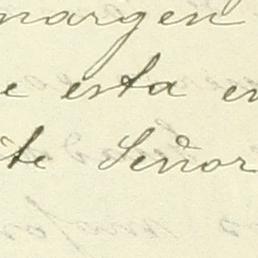 margen
e esta en
ite Señor